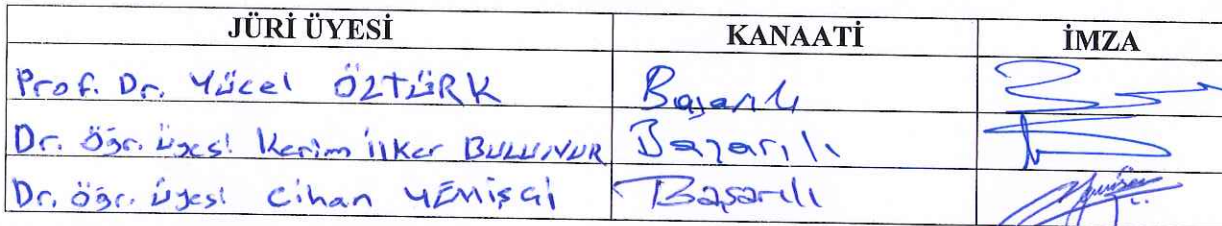 JÜRİ ÜYESİ KANAATİ İMZA
Prof. Dr. Yücel ÖZTÜRK Başarılı
Dr. Öğr. Üyesi Kerim İlker BULUNUR Başarılı
Dr. Öğr. Üyesi Cihan YEMİŞÇİ Başarılı